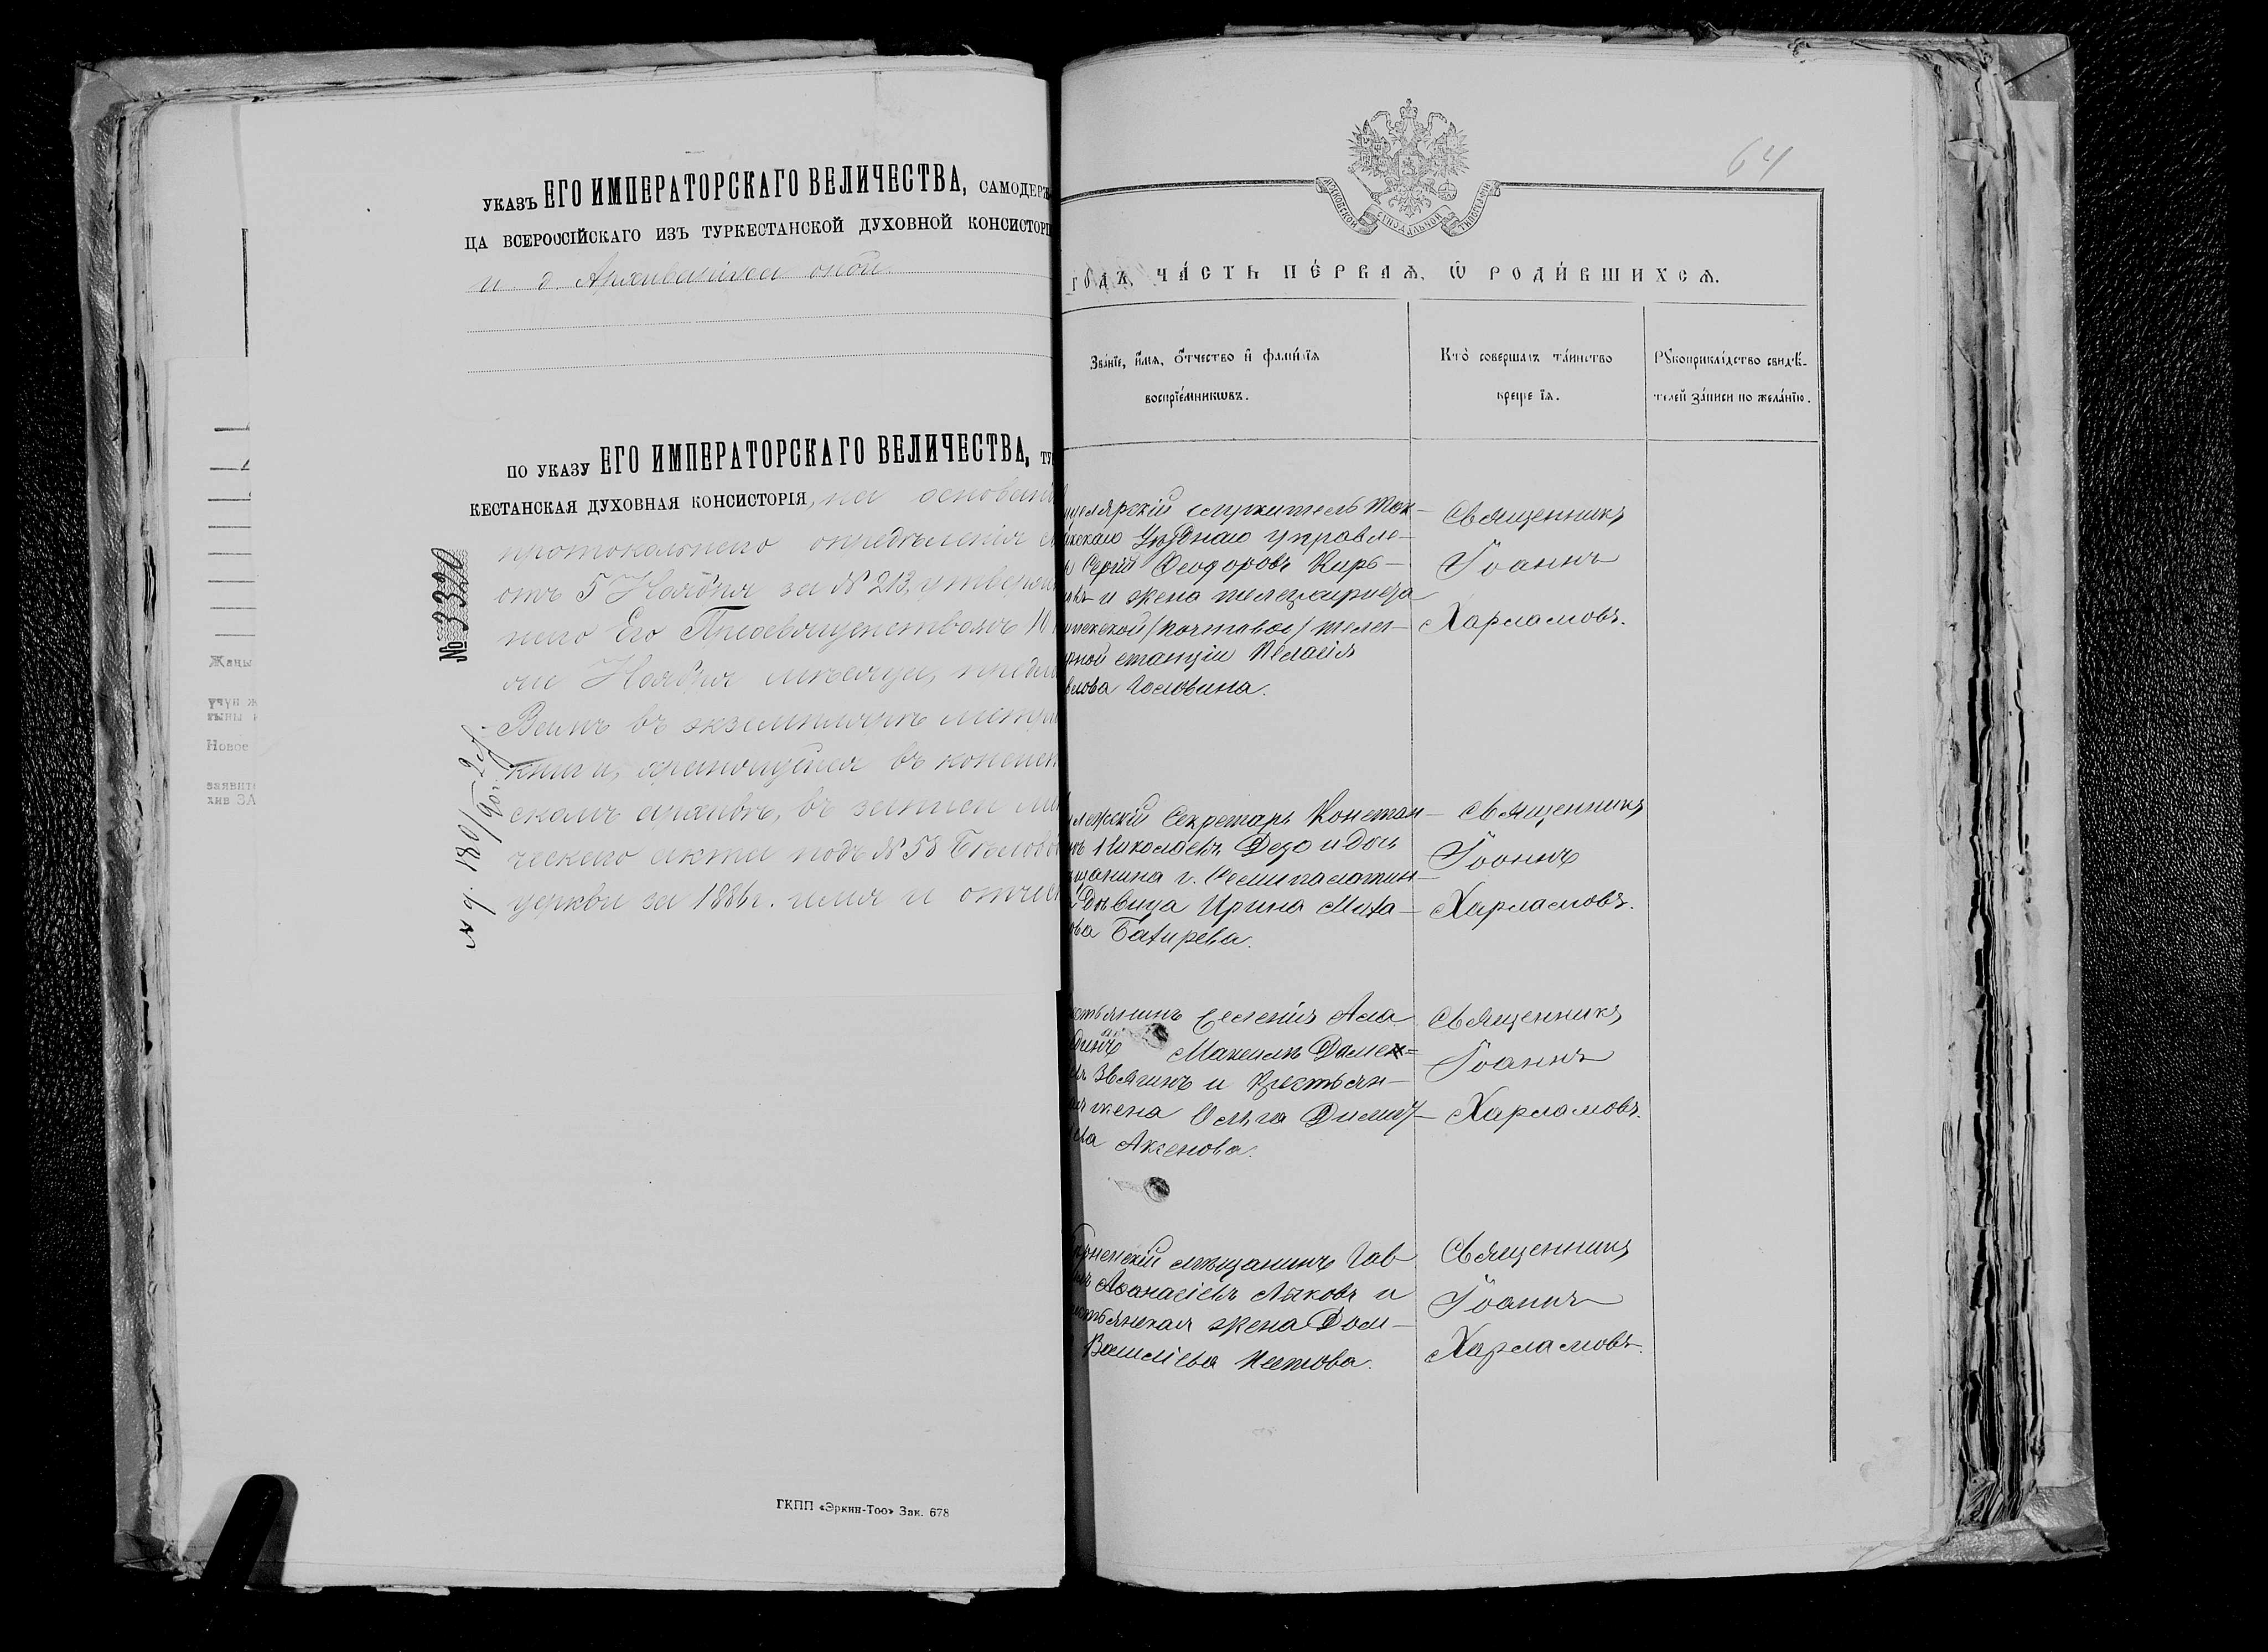 УКАЗЪ ЕГО ИМПЕРАТОРСКАГО ВЕЛИЧЕСТВА, САМОДЕРЖ
ЦА ВСЕРОССІЙСКАГО ИЗЪ ТУРКЕСТАНСКОЙ ДУХОВНОЙ КОНСИСТОРІ
и. д. Архиваріуса оной
ПО УКАЗУ ЕГО ИМПЕРАТОРСКАГО ВЕЛИЧЕСТВА, ТУ
КЕСТАНСКАЯ ДУХОВНАЯ КОНСИСТОРІЯ, на основаніи
протокольнаго опредѣленія
отъ 5 Ноября за № 213, утвержд
наго Его Преосвященствомъ 10
Ноября мѣсяца,
въ экземплярѣ метри
книги, хранящейся въ консист
скомъ архивѣ, въ записи ме
ческаго акта подъ № 58 Бѣлово
церкви за 1886 г. имя и отчест
№ 3320
Жаңы
үчүн ж
Новое
заявит
хив ЗА
ГКПП «Эркин-Тоо» Зак. 678
64
СѴНОДАЛЬНОЙ ТИПОГРАФІИ
го́дъ, ча́сть пе́рваѧ, ѡ҆ роди́вшихсѧ.
Зва́нїе, и҆́мѧ, ѻ҆́тчество и҆ фами́лїѧ
воспрїе́мникѡвъ.
Кто̀ соверша́лъ та́инство
креще їѧ.
Рꙋкоприкла́дство свидѣ́-
телей за́писи по жела́нїю.
целярскій служитель Ток-
макскаго Уѣзднаго управле-
Сергій Ѳеодоровъ Кирь-
и жена телеграфиста
пекской /почтовой/ телег-
рной станціи Пелагія
влова Головина.
Священникъ
Іоаннъ
Харламовъ.
лежскій Секретарь Констан-
Николаевъ Дезо и дочь
щанина г. Семипалатин-
дѣвица Ирина Миха-
ова Батырева.
Священникъ
Іоаннъ
Харламовъ.
стьянинъ селенія Ала
Максимъ Домен-
Звягинъ и Крестьян-
жена Ольга Димит-
ева Аксенова.
Священникъ
Іоаннъ
Харламовъ.
рненскій мѣщанинъ Гав
Аѳанасіевъ Лыковъ и
стьянская жена Дом-
Васильева Шетова.
Священникъ
Іоаннъ
Харламовъ.